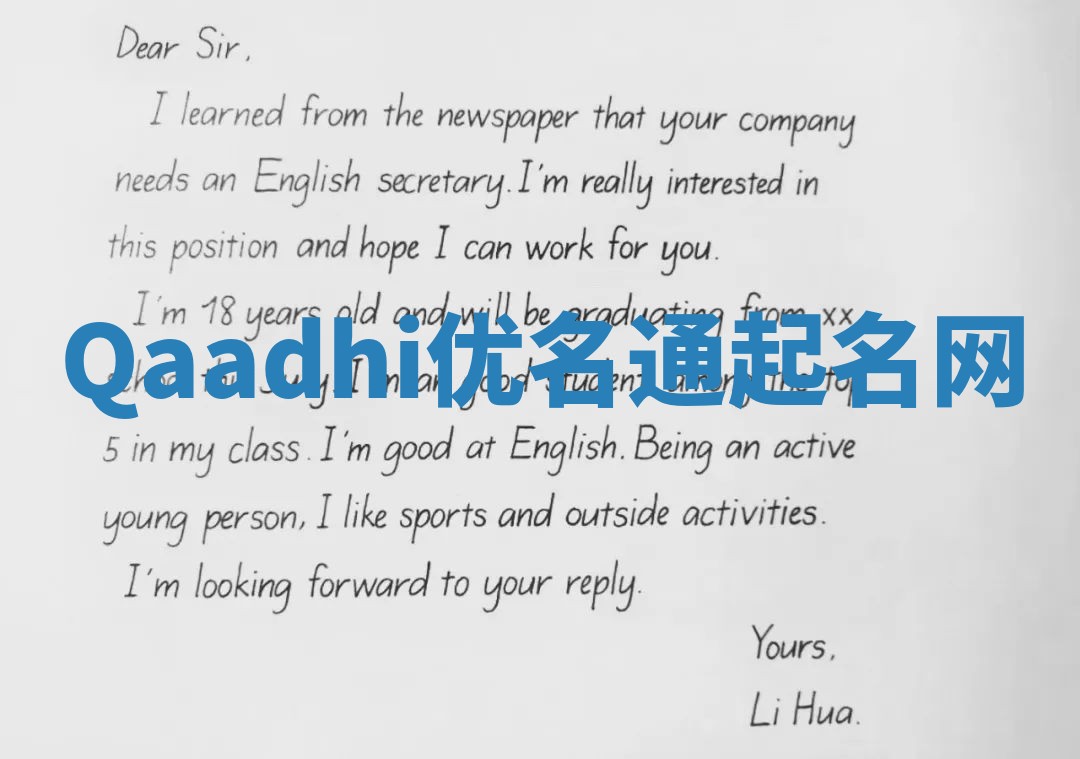 Dear Sir,
I learned from the newspaper that your company
needs an English secretary. I'm really interested in
this position and hope I can work for you.
I'm 18 years old and will be graduating from xx
Qaadhi优名通起名网
school this July. I'm a good student among the top
5 in my class. I'm good at English. Being an active
young person, I like sports and outside activities.
I'm looking forward to your reply.
Yours,
Li Hua.